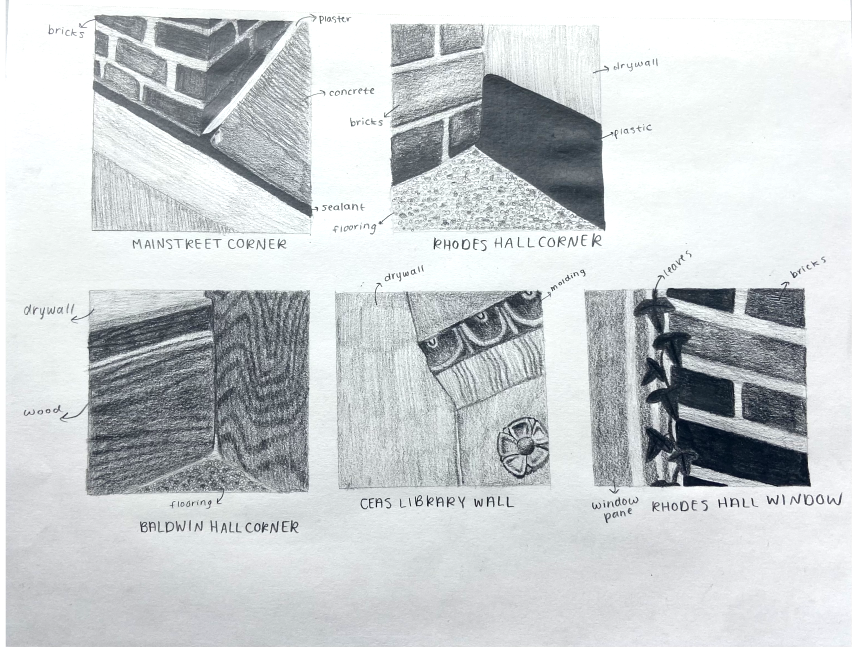 bricks
plaster
concrete
sealant
MAINSTREET CORNER
bricks
drywall
plastic
flooring
RHODES HALL CORNER
drywall
wood
flooring
BALDWIN HALL CORNER
drywall
molding
CEAS LIBRARY WALL
leaves
bricks
window
pane
RHODES HALL WINDOW